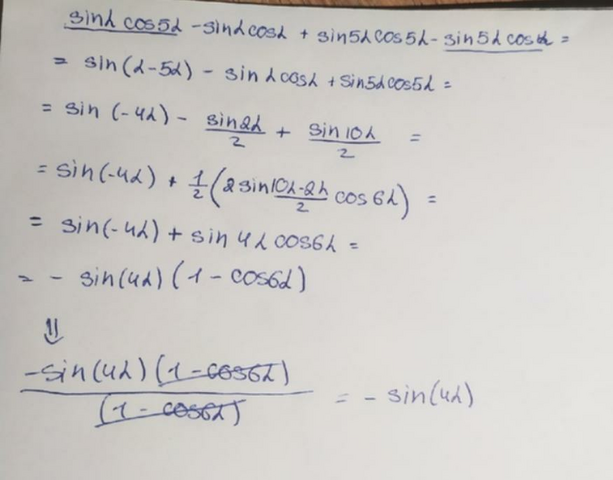 sinα cos5α - sinα cosα + sin5α cos5α - sin5α cosα =
= sin(α-5α) - sinα cosα + sin5α cos5α =
= sin(-4α) - sin2α/2 + sin10α/2 =
= sin(-4α) + 1/2 (2 sin (10α-2α)/2 cos6α) =
= sin(-4α) + sin4α cos6α =
= - sin(4α) (1 - cos6α)
⇓
-sin(4α) (1 - cos6α) / (1 - cos6α) = - sin(4α)